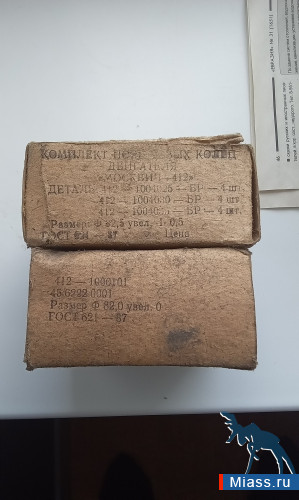 КОМПЛЕКТ КОЛЕЦ
ДВИГАТЕЛЯ
«МОСКВИЧ—412»
ДЕТАЛЬ 412—1004025—БР—4 шт.
412—1004030—БР—4 шт.
412— —БР—4 шт.
Размер Ф 82,5 увел. 0,5
ГОСТ 621—87 Цена
412—1000101
45 6222 0001
Размер Ф 82,0 увел. 0
ГОСТ 621—87
Miass.ru